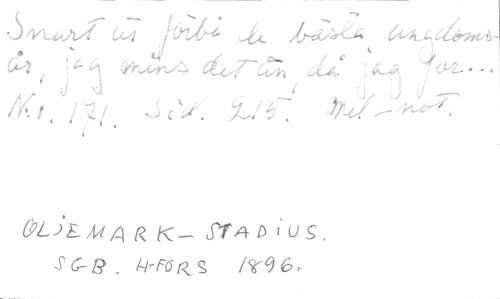 Snart är förbi de bästa ungdoms-
år, jag mins det än, då jag for...
N:o. 171. Sid. 215. Mel-not.
OLJEMARK-STADIUS.
SGB. H-FORS 1896.